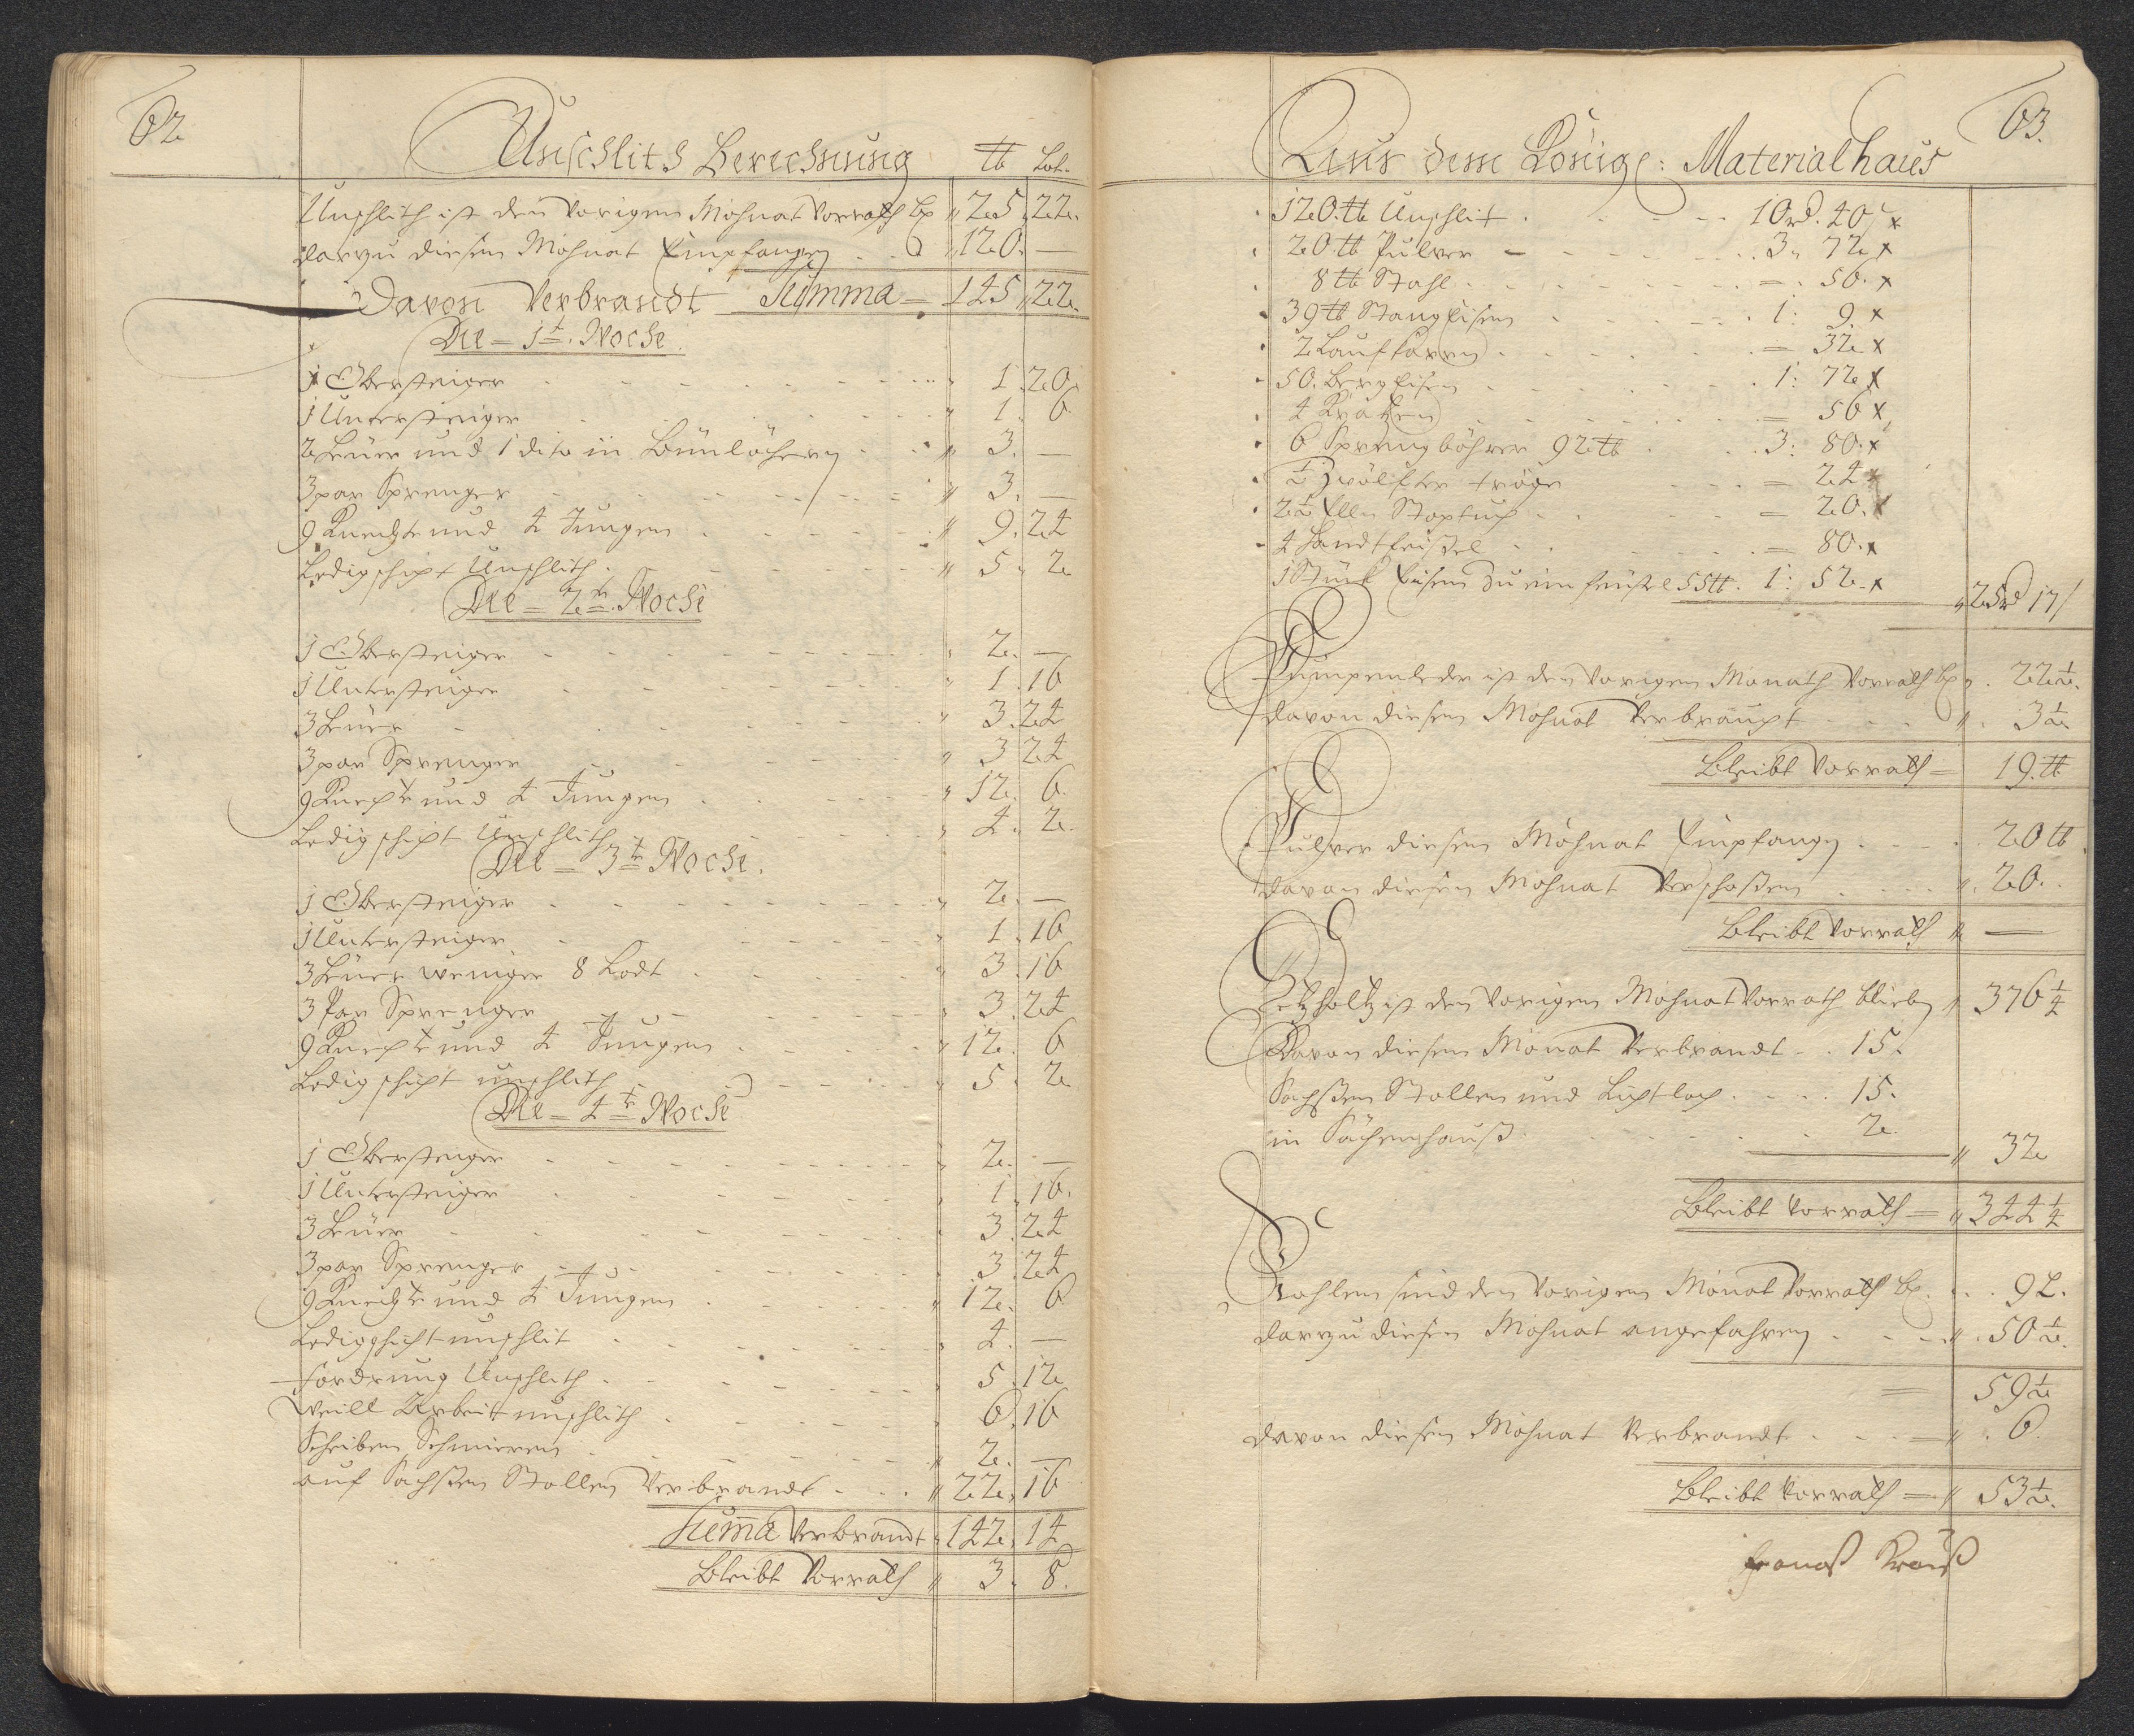 62
Unschlits Berechnung ℔ Lot.
Unschlith ist den Vorigen Mohnat Vorrath bl " 25 22
darzu diesen Mohnat Empfangen . . " 120. —
Davon Verbrandt Summa = 145 " 22.
Die = 1te. Woche
1 Obersteiger 1. 20
1 Untersteiger 1. 6
2 heüer und 1 dito in " 3. —
3 par Sprenger " 3. —
9 Knechte und 4 Jungen " 9. 24
Ledigschigt Unschlith " 5. 2
Die = 2te. Woche
1 Obersteiger 2. —
1 Untersteiger 1. 16
3 heüer 3. 24
3 par Sprenger 3 24
9 Knechte und 4 Jungen 12. 6
Ledigschigt Unschlith 4. 2
Die = 3te Woche.
1 Obersteiger 2. —
1 Untersteiger 1. 16
3 heüer weniger 8 Lodt 3. 16
3 Par Sprenger 3. 24
9 Knechte und 4 Jungen 12. 6
Ledigschigt unschlith 5. 2
Die = 4te Woche
1 Obersteiger 2. —
1 Untersteiger 1. 16.
3 heüer 3. 24
3 par Sprenger 3. 24
9 Knechte und 4 Jungen 12. 6
Ledigschicht unschlit 4. —
fordrung Unschlith 5. 12
Weill Arbeit unschlith 6. 16
Scheiben Schmieren " 2. —
auf Sachßen Stollen Verbrandt " 22. 16
Suma Verbrandt " 142. 14
Bleibt Vorrath " 3. 8.
63.
Aus dem Königl: Materialhaus
120. ℔ Unschlit 10 rd. 40 x
20 ℔ Pulver 3 " 72 x
8 ℔ Stahl = 50. x
39 ℔ Stang Eisen 1: 9. x
2 Laufkarrn = 32 x
50. Berg Eisen 1: 72 x
4 Kratzen = 56 x
6 Sprengböhrer 92 ℔ 3: 80. x
½ Zwölfter tröge = 24 x
2½ Ellen = 20. x
4 Handtfeistel = 80. x
1 Stück Eisen zu ein feüstel 55 ℔. 1: 52. x " 25 rd 17/
Pumpenleder ist den Vorigen Monath Vorrath bl. 22½.
davon diesen Mohnat Verbraucht " 3½
Bleibt Vorrath = 19. ℔
Pulver diesen Mohnat Empfangen 20 ℔
davon diesen Mohnat Verschoßen " 20.
Bleibt Vorrath " —
Setzholtz ist den Vorigen Mohnat Vorrath blieben " 376¼
Davon diesen Monat Verbrandt . . 15.
Sachßen Stollen und Lichtloch 15.
in Zächenhauß 2. " 32
Bleibt Vorrath = " 344¼
Kohlen sind den Vorigen Monat Vorrath bl. 9 L.
darzu diesen Mohnat angefahren " 50½.
= 59½
davon diesen Mohnat Verbrandt = " 6
Bleibt Vorrath = " 53½.